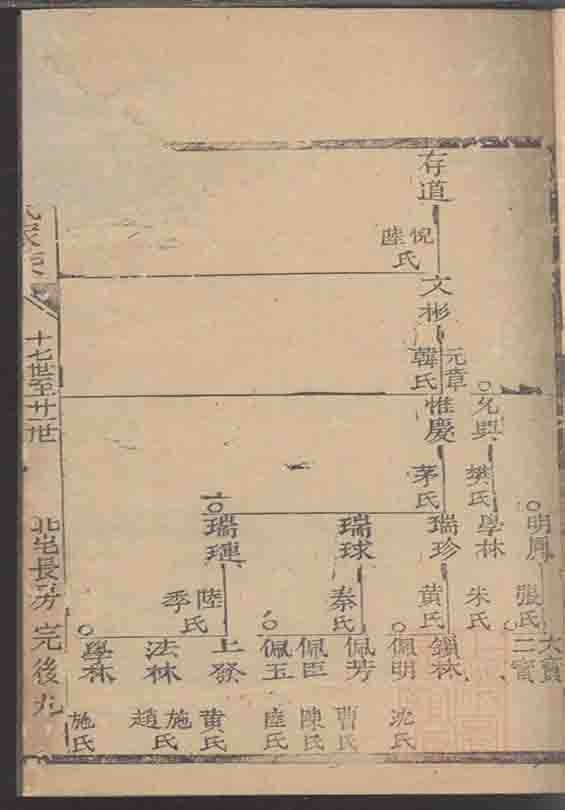 存道
倪
陸
氏
文彬
元章
韓氏
惟慶
茅氏
允典
樊氏
學林
朱氏
明鳳
張氏
大寶
二寳
瑞珍
黃氏
瑞球
秦氏
瑞璉
陸
季
氏
鎖林
佩明
沈氏
佩芳
曹氏
佩臣
陳氏
佩玉
陸氏
上發
黃氏
法林
施
趙
氏
學林
施氏
十七世至廿一世
北宅長房
完後九